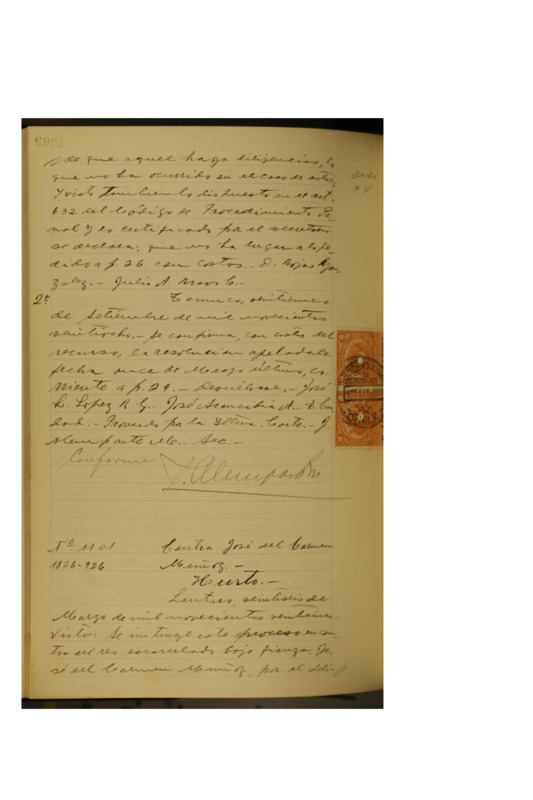 de que aquel haga diligencias, lo
que no ha ocurrido en el caso de autos,
y visto tambien lo dispuesto en el art.
632 del Código de Procedimiento Pe-
nal y lo certificado por el secretario
se declara: que no ha lugar a lo pe-
dido a p. 26 con costas.- D. Rojas Gon
zalez.- Julio A. Bravo C.-
2ª Temuco, veinticinco
de Setiembre de mil novecientos
veintiocho.- Se confirma, con costas del
recurso, la resolucion apelada de
fecha once de Marzo último, co-
rriente a p. 29.- Devuélvase.- José
L. Lopez R. G.- José Arancibia A.-
Proveido por la Iltma. Corte.- J.
Alemparte M.- Sec.-
Conforme
J. Alemparte M
Nº 1101 Contra José del Carmen
1826-926 Muñoz.-
Hurto.-
Lautaro, veintiseis de
Marzo de mil novecientos
Vistos: Se instruyó este proceso en con-
tra del reo escarcelado bajo fianza, Jo-
sé del Carmen Muñoz, por el deli-